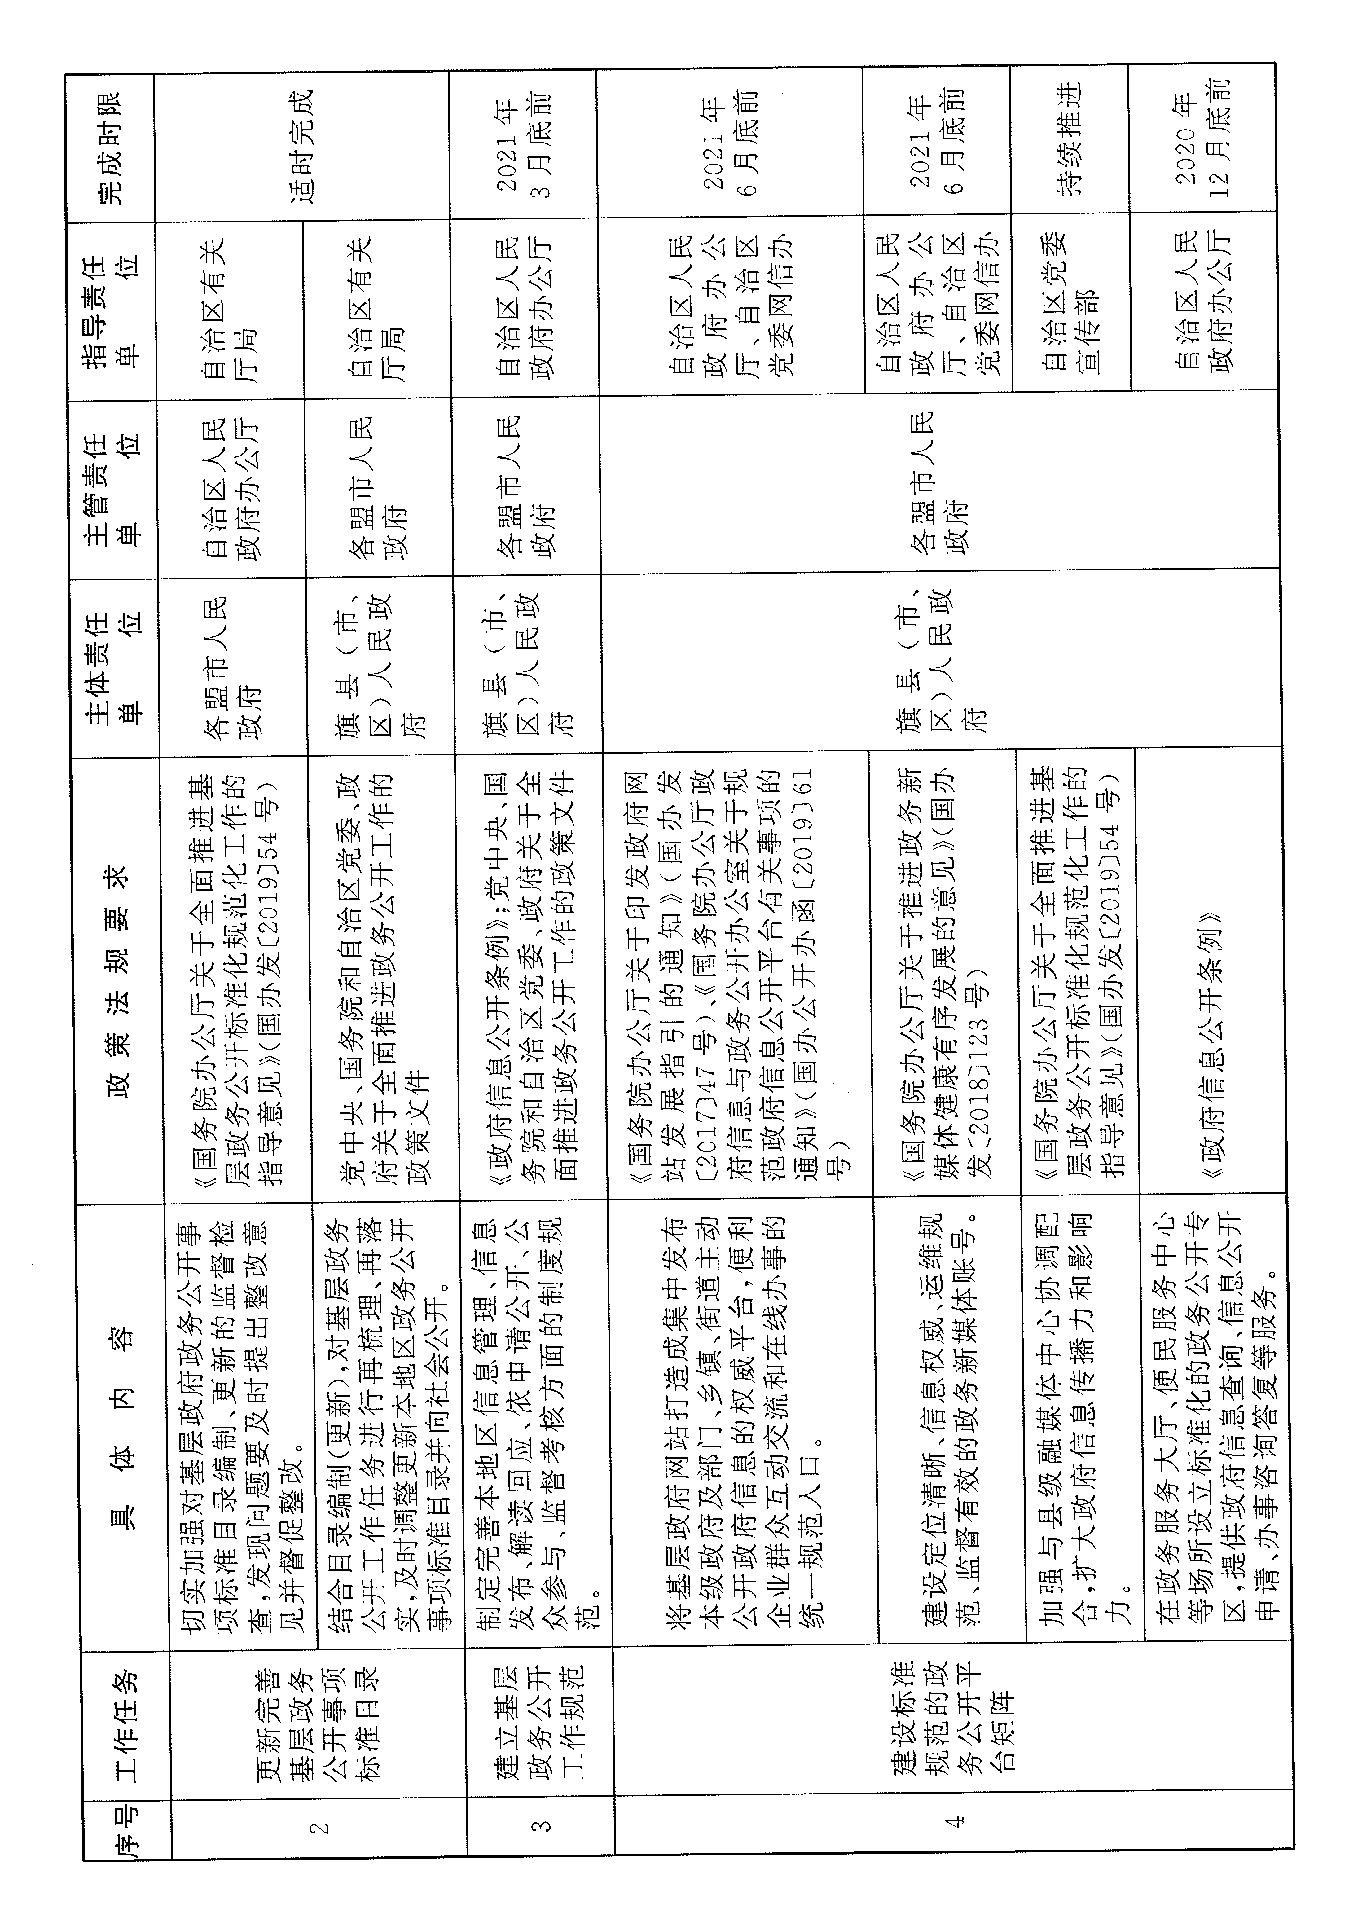 序号
工作任务
具体内容
政策法规要求
主体责任
单位
主管责任
单位
指导责任
单位
完成时限
2
更新完善
基层政务
公开事项
标准目录
切实加强对基层政府政务公开事
项标准目录编制、更新的监督检
查,发现问题要及时提出整改意
见并督促整改。
《国务院办公厅关于全面推进基
层政务公开标准化规范化工作的
指导意见》(国办发〔2019〕54号)
各盟市人民
政府
自治区人民
政府办公厅
自治区有关
厅局
适时完成
结合目录编制(更新),对基层政务
公开工作任务进行再梳理、再落
实,及时调整更新本地区政务公开
事项标准目录并向社会公开。
党中央、国务院和自治区党委、政
府关于全面推进政务公开工作的
政策文件
旗县(市、
区)人民政
府
各盟市人民
政府
自治区有关
厅局
3
建立基层
政务公开
工作规范
制定完善本地区信息管理、信息
发布、解读回应、依申请公开、公
众参与、监督考核方面的制度规
范。
《政府信息公开条例》;党中央、国
务院和自治区党委、政府关于全
面推进政务公开工作的政策文件
旗县(市、
区)人民政
府
各盟市人民
政府
自治区人民
政府办公厅
2021年
3月底前
4
建设标准
规范的政
务公开平
台矩阵
将基层政府网站打造成集中发布
本级政府及部门、乡镇、街道主动
公开政府信息的权威平台,便利
企业群众互动交流和在线办事的
统一规范入口。
《国务院办公厅关于印发政府网
站发展指引的通知》(国办发
〔2017〕47号)、《国务院办公厅政
府信息与政务公开办公室关于规
范政府信息公开平台有关事项的
通知》(国办公开办函〔2019〕61
号)
旗县(市、
区)人民政
府
各盟市人民
政府
自治区人民
政府办公
厅、自治区
党委网信办
2021年
6月底前
建设定位清晰、信息权威、运维规
范、监督有效的政务新媒体账号。
《国务院办公厅关于推进政务新
媒体健康有序发展的意见》(国办
发〔2018〕123号)
自治区人民
政府办公
厅、自治区
党委网信办
2021年
6月底前
加强与县级融媒体中心协调配
合,扩大政府信息传播力和影响
力。
《国务院办公厅关于全面推进基
层政务公开标准化规范化工作的
指导意见》(国办发〔2019〕54号)
自治区党委
宣传部
持续推进
在政务服务大厅、便民服务中心
等场所设立标准化的政务公开专
区,提供政府信息查询、信息公开
申请、办事咨询答复等服务。
《政府信息公开条例》
自治区人民
政府办公厅
2020年
12月底前